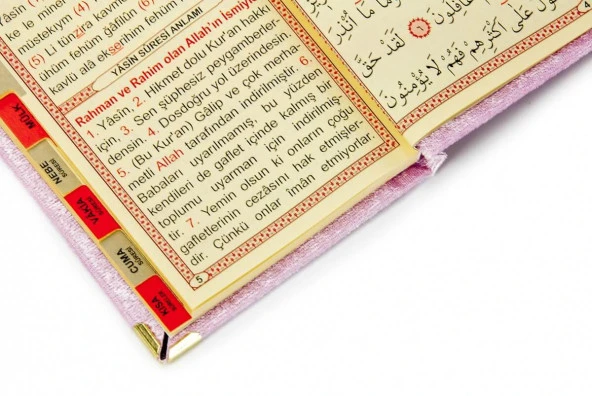 Yâsin
te le mine
müstekıym (4)
(5) Li tünzira kavmen
ühüm fehüm gâfilûn (6)
kavlü alâ ekserihim fehüm
YÂSİN SÛRESİ ANLAMI
Rahman ve Rahim olan Allah'ın İsmiyle
1. Yâsin, 2. Hikmet dolu Kur'an hakkı
için, 3. Sen şüphesiz peygamberler-
densin. 4. Dosdoğru yol üzerindesin.
5. (Bu Kur'an) Galip ve çok merha-
metli Allah tarafından indirilmiştir. 6.
Babaları uyarılmamış, bu yüzden
kendileri de gaflet içinde kalmış bir
toplumu uyarman için indirilmiş-
tir. 7. Yemin olsun ki onların çoğu
gafletlerinin cezâsını hak etmişler-
dir. Çünkü onlar îmân etmiyorlar.
5
MÜLK
NEBE
SÛRESİ
VAKIA
SÛRESİ
CUMA
SÛRESİ
KISA
SURELER
4
مَا أُنْذِرَ
غَافِلُونَ ﴿٦﴾ لَقَدْ حَقَّ
الْقَوْلُ عَلَى أَكْثَرِهِمْ فَهُمْ لَا يُؤْمِنُونَ